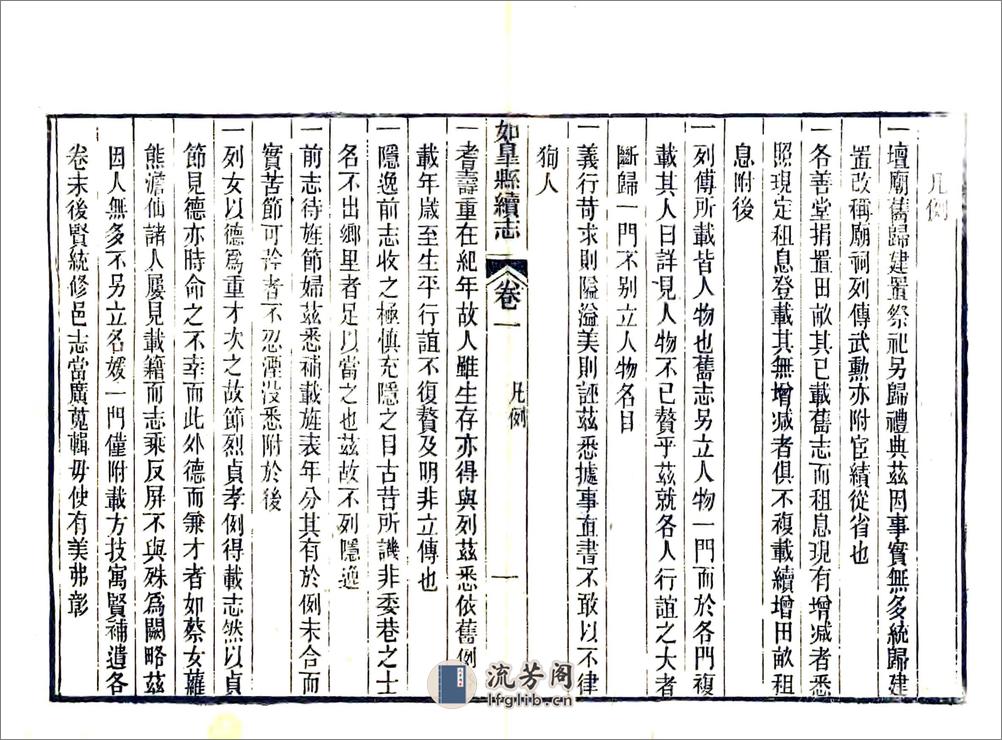 凡例
一壇廟舊歸建置祭祀另歸禮典茲因事實無多統歸建
置改稱廟祠列傳武勳亦附宦績從省也
一各善堂捐置田畝其已載舊志而租息現有增減者悉
照現定租息登載其無增減者俱不複載續增田畝租
息附後
一列傳所載皆人物也舊志另立人物一門而於各門複
載其人曰詳見人物不已贅乎茲就各人行誼之大者
斷歸一門不别立人物名目
一義行苛求則隘溢美則誣茲悉據事直書不敢以不律
狥人
如皋縣續志 卷一 凡例 一
一耆壽重在紀年故人雖生存亦得與列茲悉依舊例
載年歲至生平行誼不復贅及明非立傳也
一隱逸前志收之極慎充隱之目古昔所譏非委巷之士
名不出鄉里者足以當之也茲故不列隱逸
一前志待旌節婦茲悉補載旌表年分其有於例未合而
實苦節可矜者不忍湮没悉附於後
一列女以德爲重才次之故節烈貞孝例得載志然以貞
節見德亦時命之不幸而此外德而兼才者如蔡女蘿
熊澹仙諸人屢見載籍而志乘反屏不與殊爲闕略茲
因人無多不另立名媛一門僅附載方技寓賢補遺各
卷末後賢統修邑志當廣蒐輯毋使有美弗彰
流芳阁
lfglib.cn